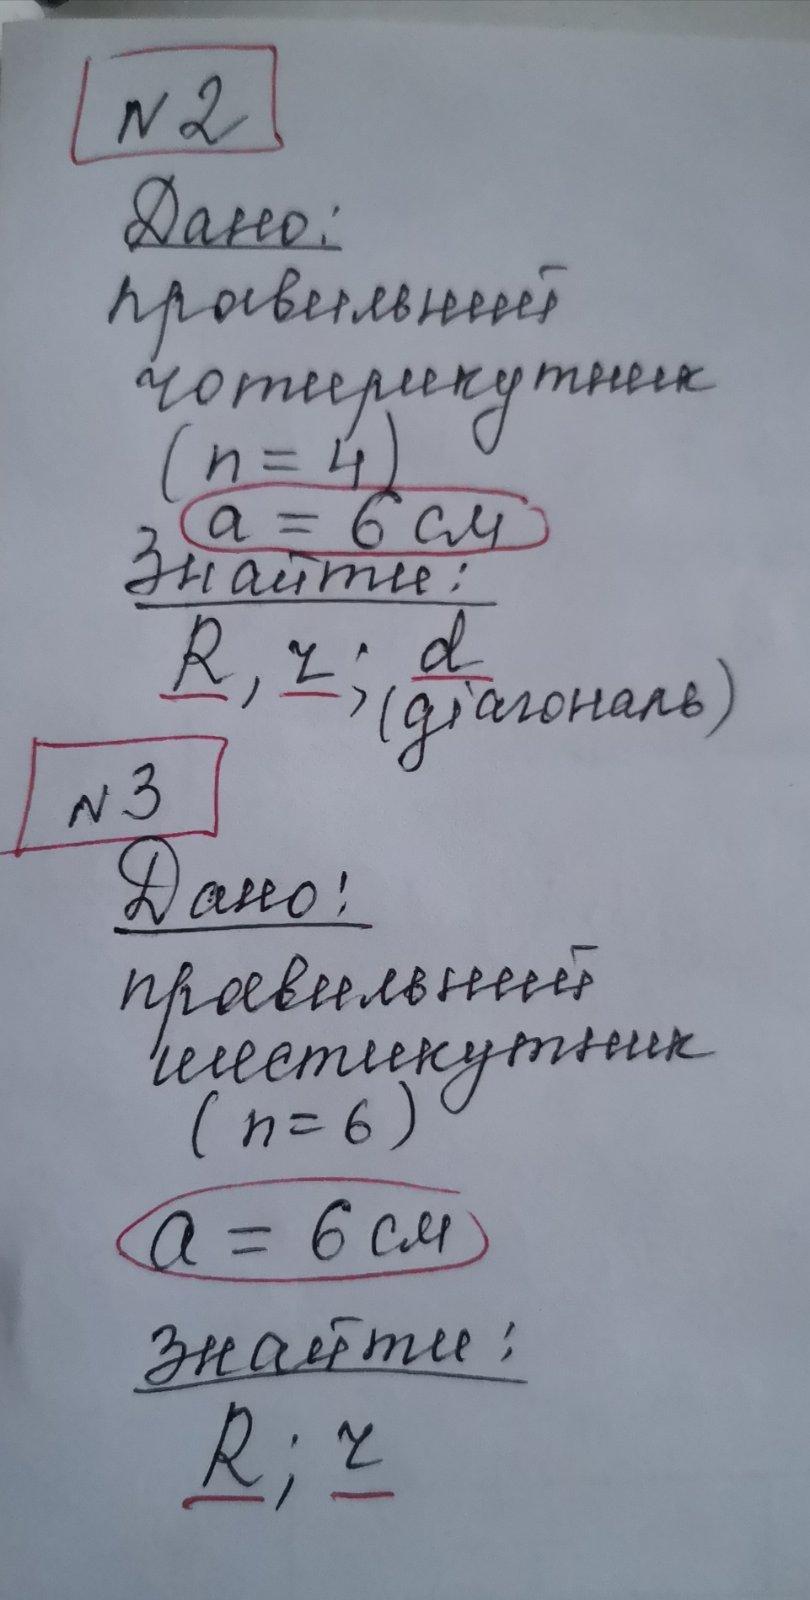 N 2
Дано:
правильний
чотирикутник
(n = 4)
a = 6 см
Знайти:
R, r; d
(діагональ)
N 3
Дано:
правильний
шестикутник
(n = 6)
a = 6 см
Знайти:
R; r